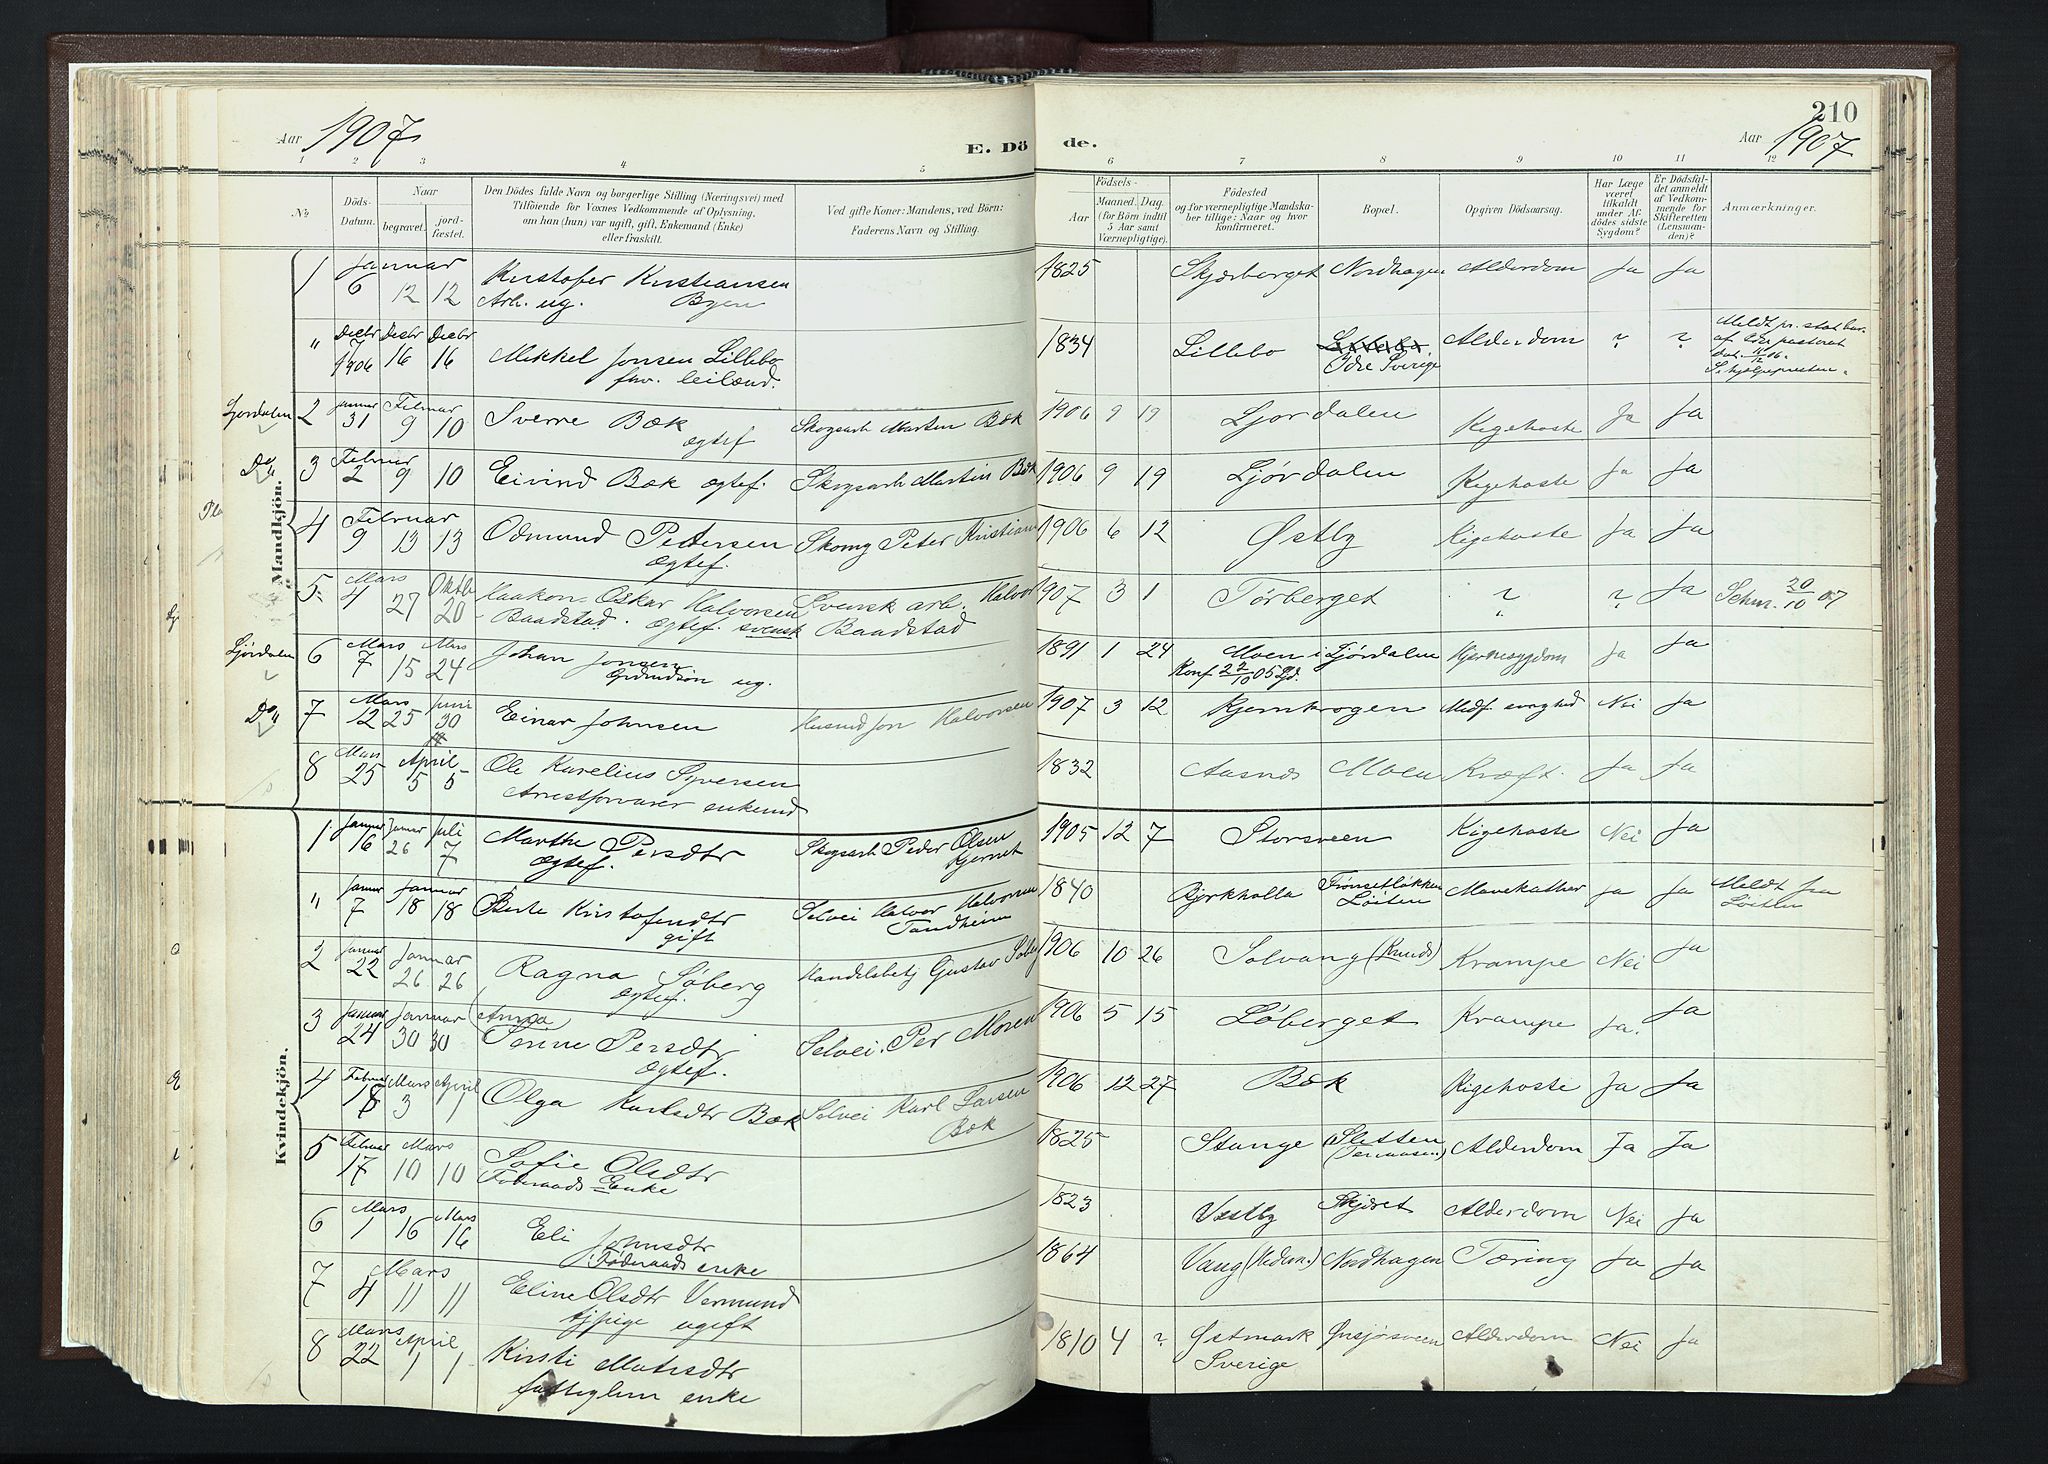 210
Aar 1907
E. Dö de.
Aar 1907
1 2 3 4 5 6 7 8 9 10 11 12
№
Döds-Datum.
Naar
begravet.
jord-fæstet.
Den Dödes fulde Navn og borgerlige Stilling (Næringsvei) med
Tilföiende for Voxnes Vedkommende af Oplysning,
om han (hun) var ugift, gift, Enkemand (Enke)
eller fraskilt.
Ved gifte Koner: Mandens, ved Börn:
Faderens Navn og Stilling.
Födsels-
Aar
Maaned. Dag.
(for Börn indtil
5 Aar samt
Værnepligtige).
Födested
og for værnepligtige Mandska-
ber tillige: Naar og hvor
konfirmeret.
Bopæl.
Opgiven Dödsaarsag.
Har Læge
været
tilkaldt
under Af-
dödes sidste
Sygdom?
Er Dödsfal-
det anmeldt
af Vedkom-
mende for
Skifteretten
(Lensman-
den)?
Anmærkninger.
Mandkjön.
1 Januar 6 12 12 Kristofer Kristiansen 1825 Skjærberget Nordhagen Alderdom Ja Ja
Arb. ug. Byen
" Decbr 7 1906 Decbr 16 Decbr 16 Mikkel Jonsen Lillebo 1834 Lillebo Idre Sverige Alderdom ? ?
fhv. leilænd.
Ljørdalen 2 Januar 31 Februar 9 10 Sverre Bæk Skogsarb Morten Bæk 1906 9 19 Ljordalen Kigehoste Ja Ja
ægtef
Do " 3 Februar 2 9 10 Eivind Bæk ægtef. Skogsarb Martin Bæk 1906 9 19 Ljørdalen Kigehoste Ja Ja
4 Februar 9 13 13 Odmund Pettersen Skomg Peter Kristians 1906 6 12 Østby Kigehoste Ja Ja
ægtef.
5 Mars 4 27 Oktb 20 Haakon Oskar Halvorsen Svensk arb. Halvor 1907 3 1 Törberget ? ? Ja Schm. 20/10 07
Baadstad. ægtef. svensk Baadstad
Ljørdalen 6 Mars 7 15 Mars 24 Johan Jonsen 1891 1 24 Moen i Ljørdalen Hjernesygdom Ja Ja
ug. Konf 22/10 05
Do " 7 Mars 12 25 Juni 30 Einar Johnsen Husmd Jon Halvorsen 1907 3 12 Kjernkrogen Medf. svaghed Nei Ja
8 Mars 25 April 5 5 Ole Karelius Syversen 1832 Aasnes Moen Kræft. Ja Ja
Arrestforvarer enkemd
Kvindekjön.
1 Januar 16 Januar 26 Juli 7 Marthe Persdtr Skogsarb Peder Olsen 1905 12 7 Storsveen Kigehoste Nei Ja
ægtef. Kjernet
" Januar 7 Januar 18 18 Berte Kristofersdtr Selvei Halvor Halvorsen 1840 Bjørkholla Løiten Mavekathar Ja Ja Meldt fra Løiten
gift Tandheim
2 Januar 22 Januar 26 26 Ragna Søberg Handelsbetj Gustav Søberg 1906 10 26 Solvang Krampe Nei Ja
ægtef.
3 Januar 24 Januar 30 30 (Anna) Selvei. Per Moren 1906 5 15 Løberget Krampe Ja. Ja
Persdtr
ægtef.
4 Februar 18 Mars 3 April 1 Olga Karlsdtr Bæk Selvei Karl Larsen 1906 12 27 Bæk Kigehoste Ja Ja
Bæk
5 Februar 17 Mars 10 10 Sofie Olsdtr 1825 Stange Sletten Alderdom Ja Ja
Føderaads Enke
6 Mars 1 16 Mars 16 Eli Jonsdtr 1823 Vestby Skjæret Alderdom Nei Ja
Føderaads enke
7 Mars 4 11 11 Eline Olsdtr Vermund 1864 Vang (Hedem.) Nordhagen Tæring Ja Ja
tjpige ugift
8 Mars 22 April 1 1 Kirsti Matisdtr 1810 4 ? Østmark Alderdom Nei Ja
fattiglem enke Sverige